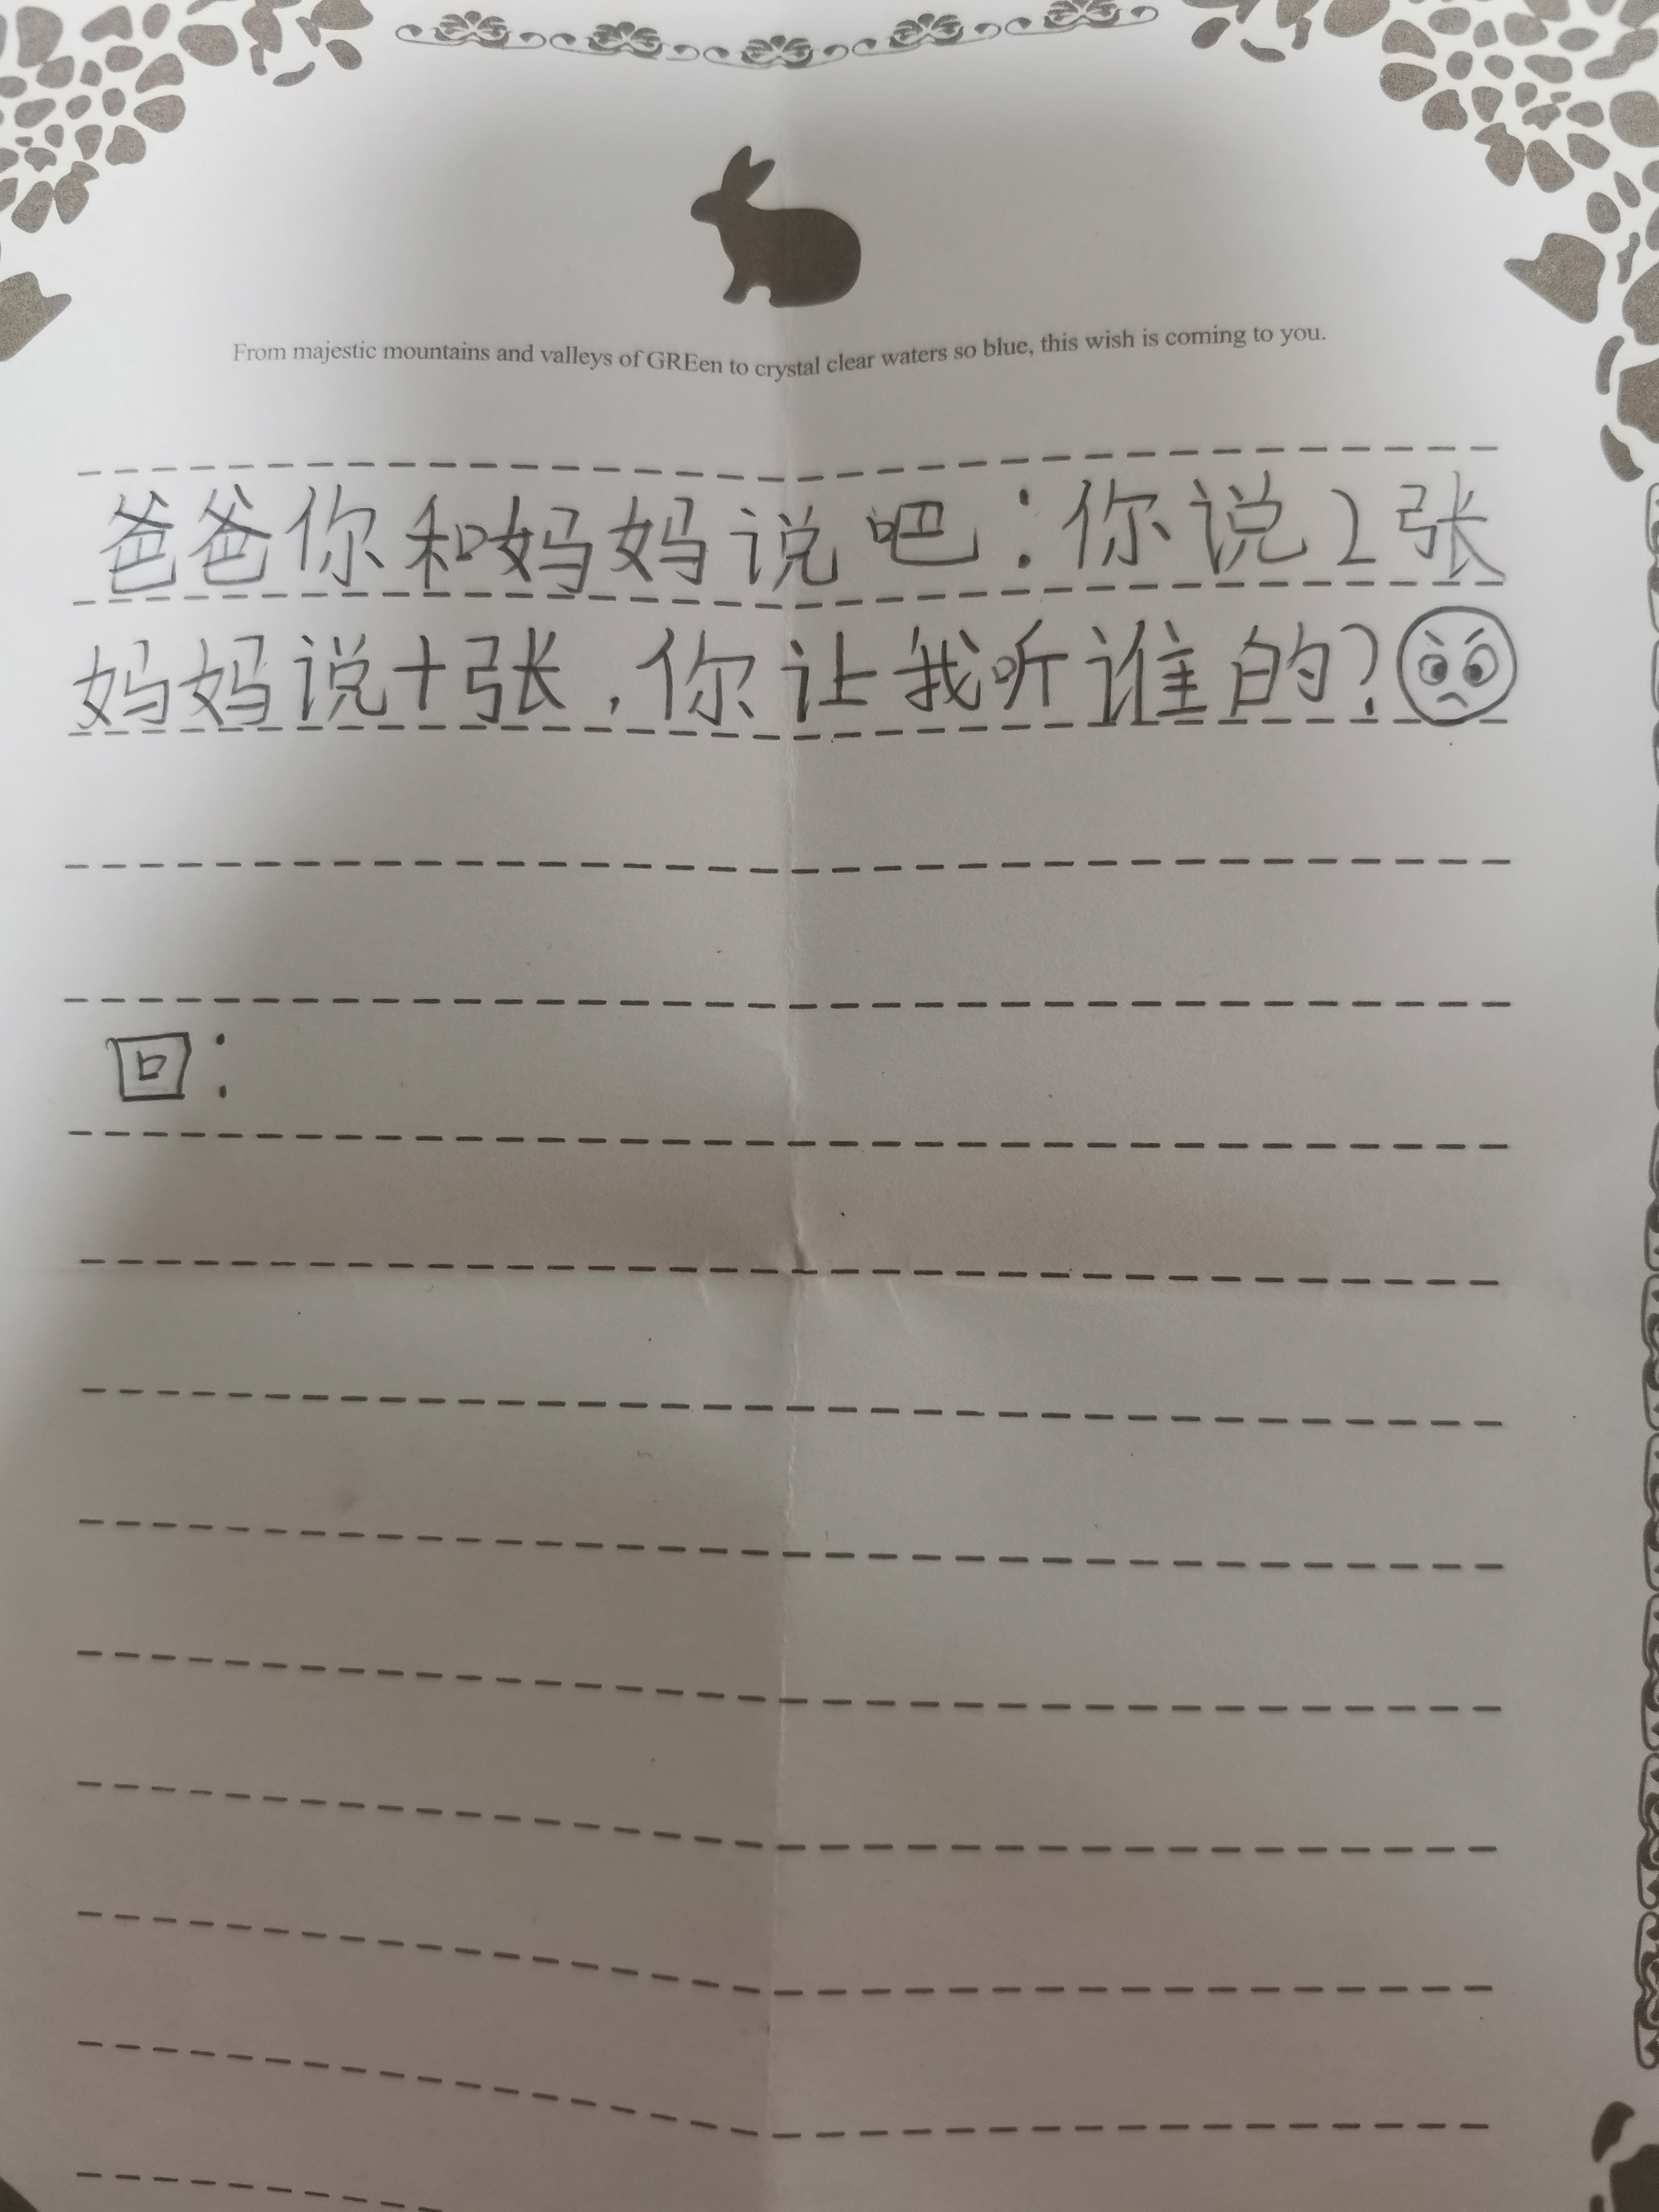 From majestic mountains and valleys of GREen to crystal clear waters so blue, this wish is coming to you.
爸爸你和妈妈说吧：你说2张
妈妈说十张，你让我听谁的？
回：